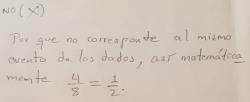 NO (X)
Por que no corresponde al mismo
evento de los dados, así matemática
mente 4/8 = 1/2.